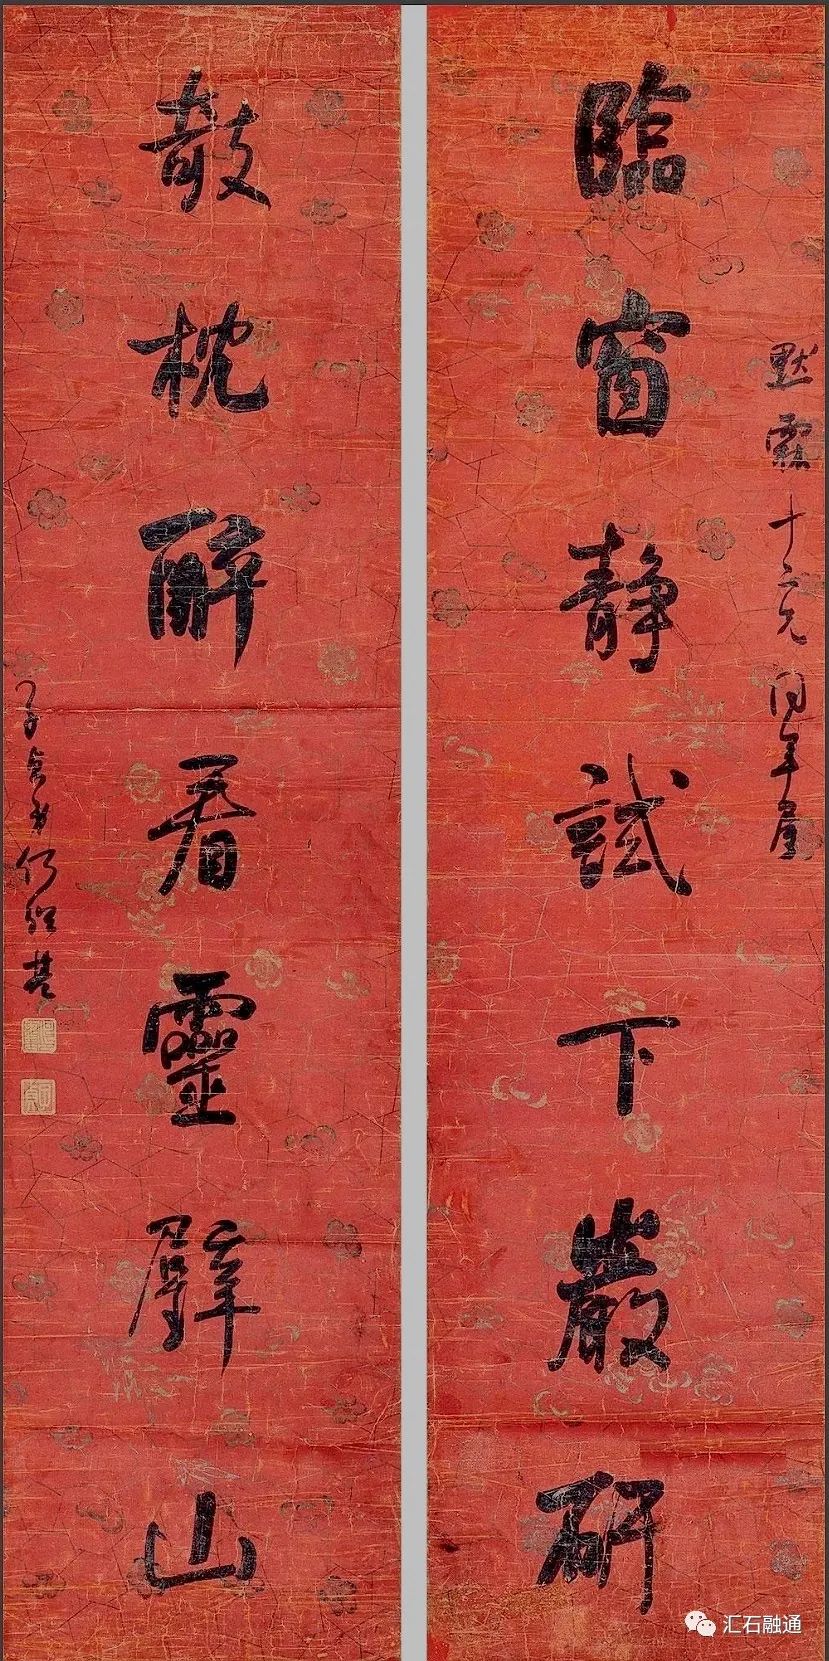 默霖十二兄同年屬
臨窗静試下巖研
敧枕醉看靈壁山
子貞弟何紹基
汇石融通